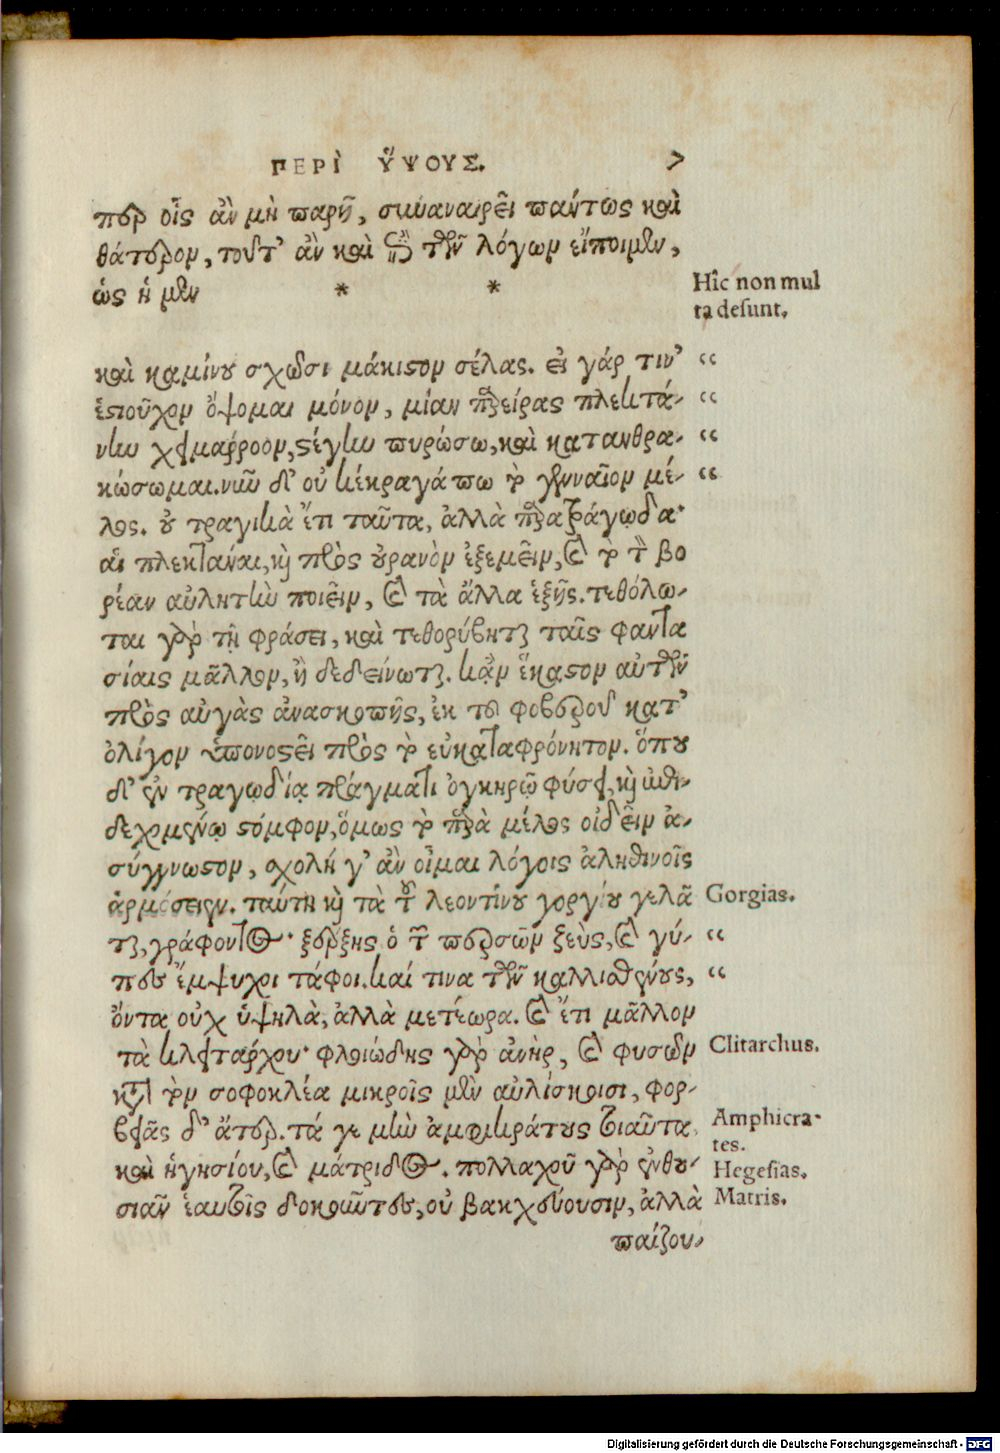 ΠΕΡῚ ὝΨΟΥΣ. 7
περ οἷς ἂν μὴ παρῇ, συναναιρεῖ παντως καὶ
θάτερον, τοῦτ’ ἂν καὶ ἐπὶ τῶν λόγων εἴποιμεν,
ὡς ἡ μὲν * *
Hîc non mul
ta desunt.
καὶ καμίνου σχῶσι μάκιστον σέλας. εἰ γάρ τιν’ “
ἑστιοῦχον ὄψομαι μόνον, μίαν παρείρας πλεκτά- “
νην χειμάρροον, στέγην πυρώσω, καὶ κατανθρα- “
κώσομαι. νῦν δ’ οὐ κέκραγά πω τὸ γενναῖον μέ- “
λος. οὐ τραγικὰ ἔτι ταῦτα, ἀλλὰ παρατράγῳδα·
αἱ πλεκτάναι, καὶ πρὸς οὐρανὸν ἐξεμεῖν, καὶ τὸ τὸν βο
ρέαν αὐλητὴν ποιεῖν, καὶ τὰ ἄλλα ἑξῆς. τεθόλω-
ται γὰρ τῇ φράσει, καὶ τεθορύβηται ταῖς φαντα
σίαις μᾶλλον, ἢ δεδείνωται. κἂν ἕκαστον αὐτῶν
πρὸς αὐγὰς ἀνασκοπῇς, ἐκ τοῦ φοβεροῦ κατ’
ὀλίγον ὑπονοστεῖ πρὸς τὸ εὐκαταφρόνητον. ὅπου
δ’ ἐν τραγῳδίᾳ πράγματι ὀγκηρῷ φύσει, καὶ ἐπι-
δεχομένῳ στόμφον, ὅμως τὸ παρὰ μέλος οἰδεῖν ἀ-
σύγγνωστον, σχολῇ γ’ ἂν οἶμαι λόγοις ἀληθινοῖς
ἁρμόσειεν. ταύτῃ καὶ τὰ τοῦ λεοντίνου γοργίου γελᾶ
Gorgias.
ται, γράφοντος· ξέρξης ὁ τῶν περσῶν ζεὺς, καὶ γύ- “
πες ἔμψυχοι τάφοι. καί τινα τῶν καλλισθένους, “
ὄντα οὐχ ὑψηλὰ, ἀλλὰ μετέωρα. καὶ ἔτι μᾶλλον
τὰ κλειτάρχου· φλοιώδης γὰρ ἀνὴρ, καὶ φυσῶν
Clitarchus.
κατὰ τὸν σοφοκλέα μικροῖς μὲν αὐλίσκοισι, φορ-
βειᾶς δ’ ἄτερ. τά γε μὴν ἀμφικράτους τοιαῦτα,
Amphicra-
tes.
καὶ ἡγησίου, καὶ μάτριδος. πολλαχοῦ γὰρ ἐνθου-
Hegesias.
σιᾶν ἑαυτοῖς δοκοῦντες, οὐ βακχεύουσιν, ἀλλὰ
Matris.
παίζου-
Digitalisierung gefördert durch die Deutsche Forschungsgemeinschaft - DFG